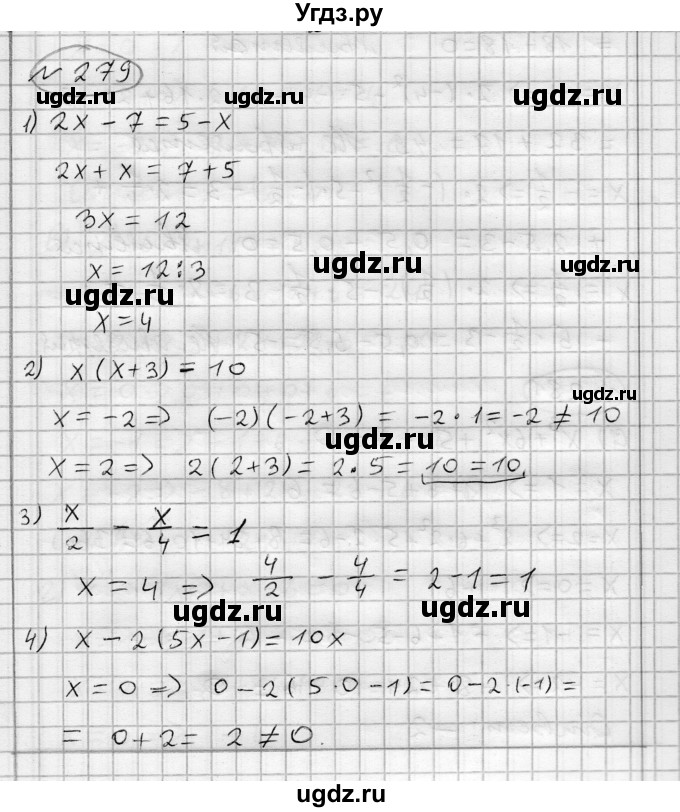 Угдз.ру
№ 279
ugdz.ru ugdz.ru ugdz.ru
1) 2x - 7 = 5 - x
2x + x = 7 + 5
3x = 12
x = 12 : 3
ugdz.ru ugdz.ru
ugdz.ru
x = 4
2) x (x+3) = 10
ugdz.ru
x = -2 => (-2)(-2+3) = -2 · 1 = -2 ≠ 10
ugdz.ru
x = 2 => 2(2+3) = 2 · 5 = 10 = 10,
3) x/2 - x/4 = 1
x = 4 => 4/2 - 4/4 = 2 - 1 = 1
ugdz.ru ugdz.ru
4) x - 2(5x - 1) = 10x
x = 0 => 0 - 2(5·0 - 1) = 0 - 2·(-1) =
= 0 + 2 = 2 ≠ 0.
ugdz.ru